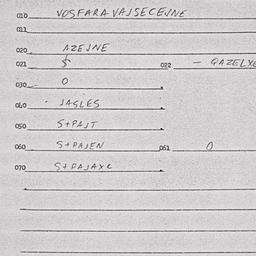 010 VOSFARA VAJSECEJNE
011
020 AZEJNE
021 $ 022 - GAZELXE
030 0
040 JASLES
050 S+PAJT
060 S+PAJEN 061 0
070 S+PAJAXE